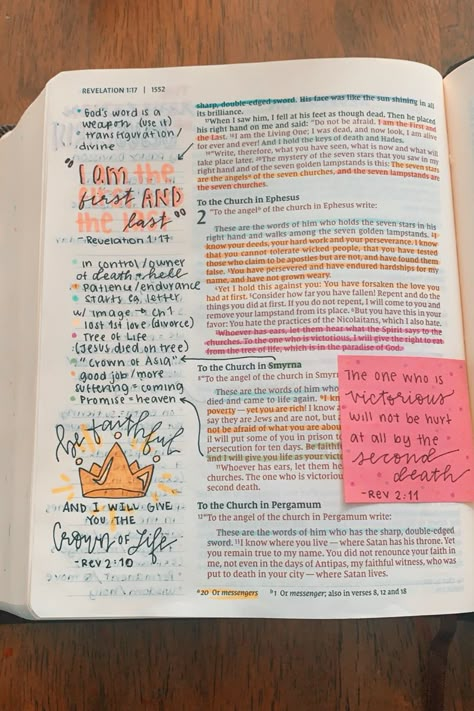 REVELATION 1:17 | 1552
• God's word is a
weapon (use it)
• transfiguration/
divine
"I am the
first AND
the last"
- Revelation 1:17
• in control/owner
of death + hell
• Patience/endurance
• Starts ea. letter
w/ image → Ch 1
• lost 1st love (divorce)
• Tree of Life
(Jesus died on tree)
• "Crown of Asia"
• good job/more
suffering = coming
• Promise = heaven
be faithful
AND I WILL GIVE
YOU THE
Crown of Life
- REV 2:10
sharp, double-edged sword. His face was like the sun shining in all
its brilliance.
17When I saw him, I fell at his feet as though dead. Then he placed
his right hand on me and said: "Do not be afraid. I am the First and
the Last. 18I am the Living One; I was dead, and now look, I am alive
for ever and ever! And I hold the keys of death and Hades.
19"Write, therefore, what you have seen, what is now and what will
take place later. 20The mystery of the seven stars that you saw in my
right hand and of the seven golden lampstands is this: The seven stars
are the angels a of the seven churches, and the seven lampstands are
the seven churches.
To the Church in Ephesus
2 "To the angel b of the church in Ephesus write:
These are the words of him who holds the seven stars in his
right hand and walks among the seven golden lampstands. 2I
know your deeds, your hard work and your perseverance. I know
that you cannot tolerate wicked people, that you have tested
those who claim to be apostles but are not, and have found them
false. 3You have persevered and have endured hardships for my
name, and have not grown weary.
4Yet I hold this against you: You have forsaken the love you
had at first. 5Consider how far you have fallen! Repent and do the
things you did at first. If you do not repent, I will come to you and
remove your lampstand from its place. 6But you have this in your
favour: You hate the practices of the Nicolaitans, which I also hate.
7Whoever has ears, let them hear what the Spirit says to the
churches. To the one who is victorious, I will give the right to eat
from the tree of life, which is in the paradise of God.
To the Church in Smyrna
8"To the angel of the church in Smyr
These are the words of him who
died and came to life again. 9I kn
poverty – yet you are rich! I know a
say they are Jews and are not, but
not be afraid of what you are abou
il will put some of you in prison t
persecution for ten days. Be faith
and I will give you life as your vict
11Whoever has ears, let them he
churches. The one who is victoriou
second death.
To the Church in Pergamum
12"To the angel of the church in Pergamum write:
These are the words of him who has the sharp, double-edged
sword. 13I know where you live – where Satan has his throne. Yet
you remain true to my name. You did not renounce your faith in
me, not even in the days of Antipas, my faithful witness, who was
put to death in your city – where Satan lives.
a 20 Or messengers b 1 Or messenger; also in verses 8, 12 and 18
The one who is
victorious
will not be hurt
at all by the
second
death
- REV 2:11